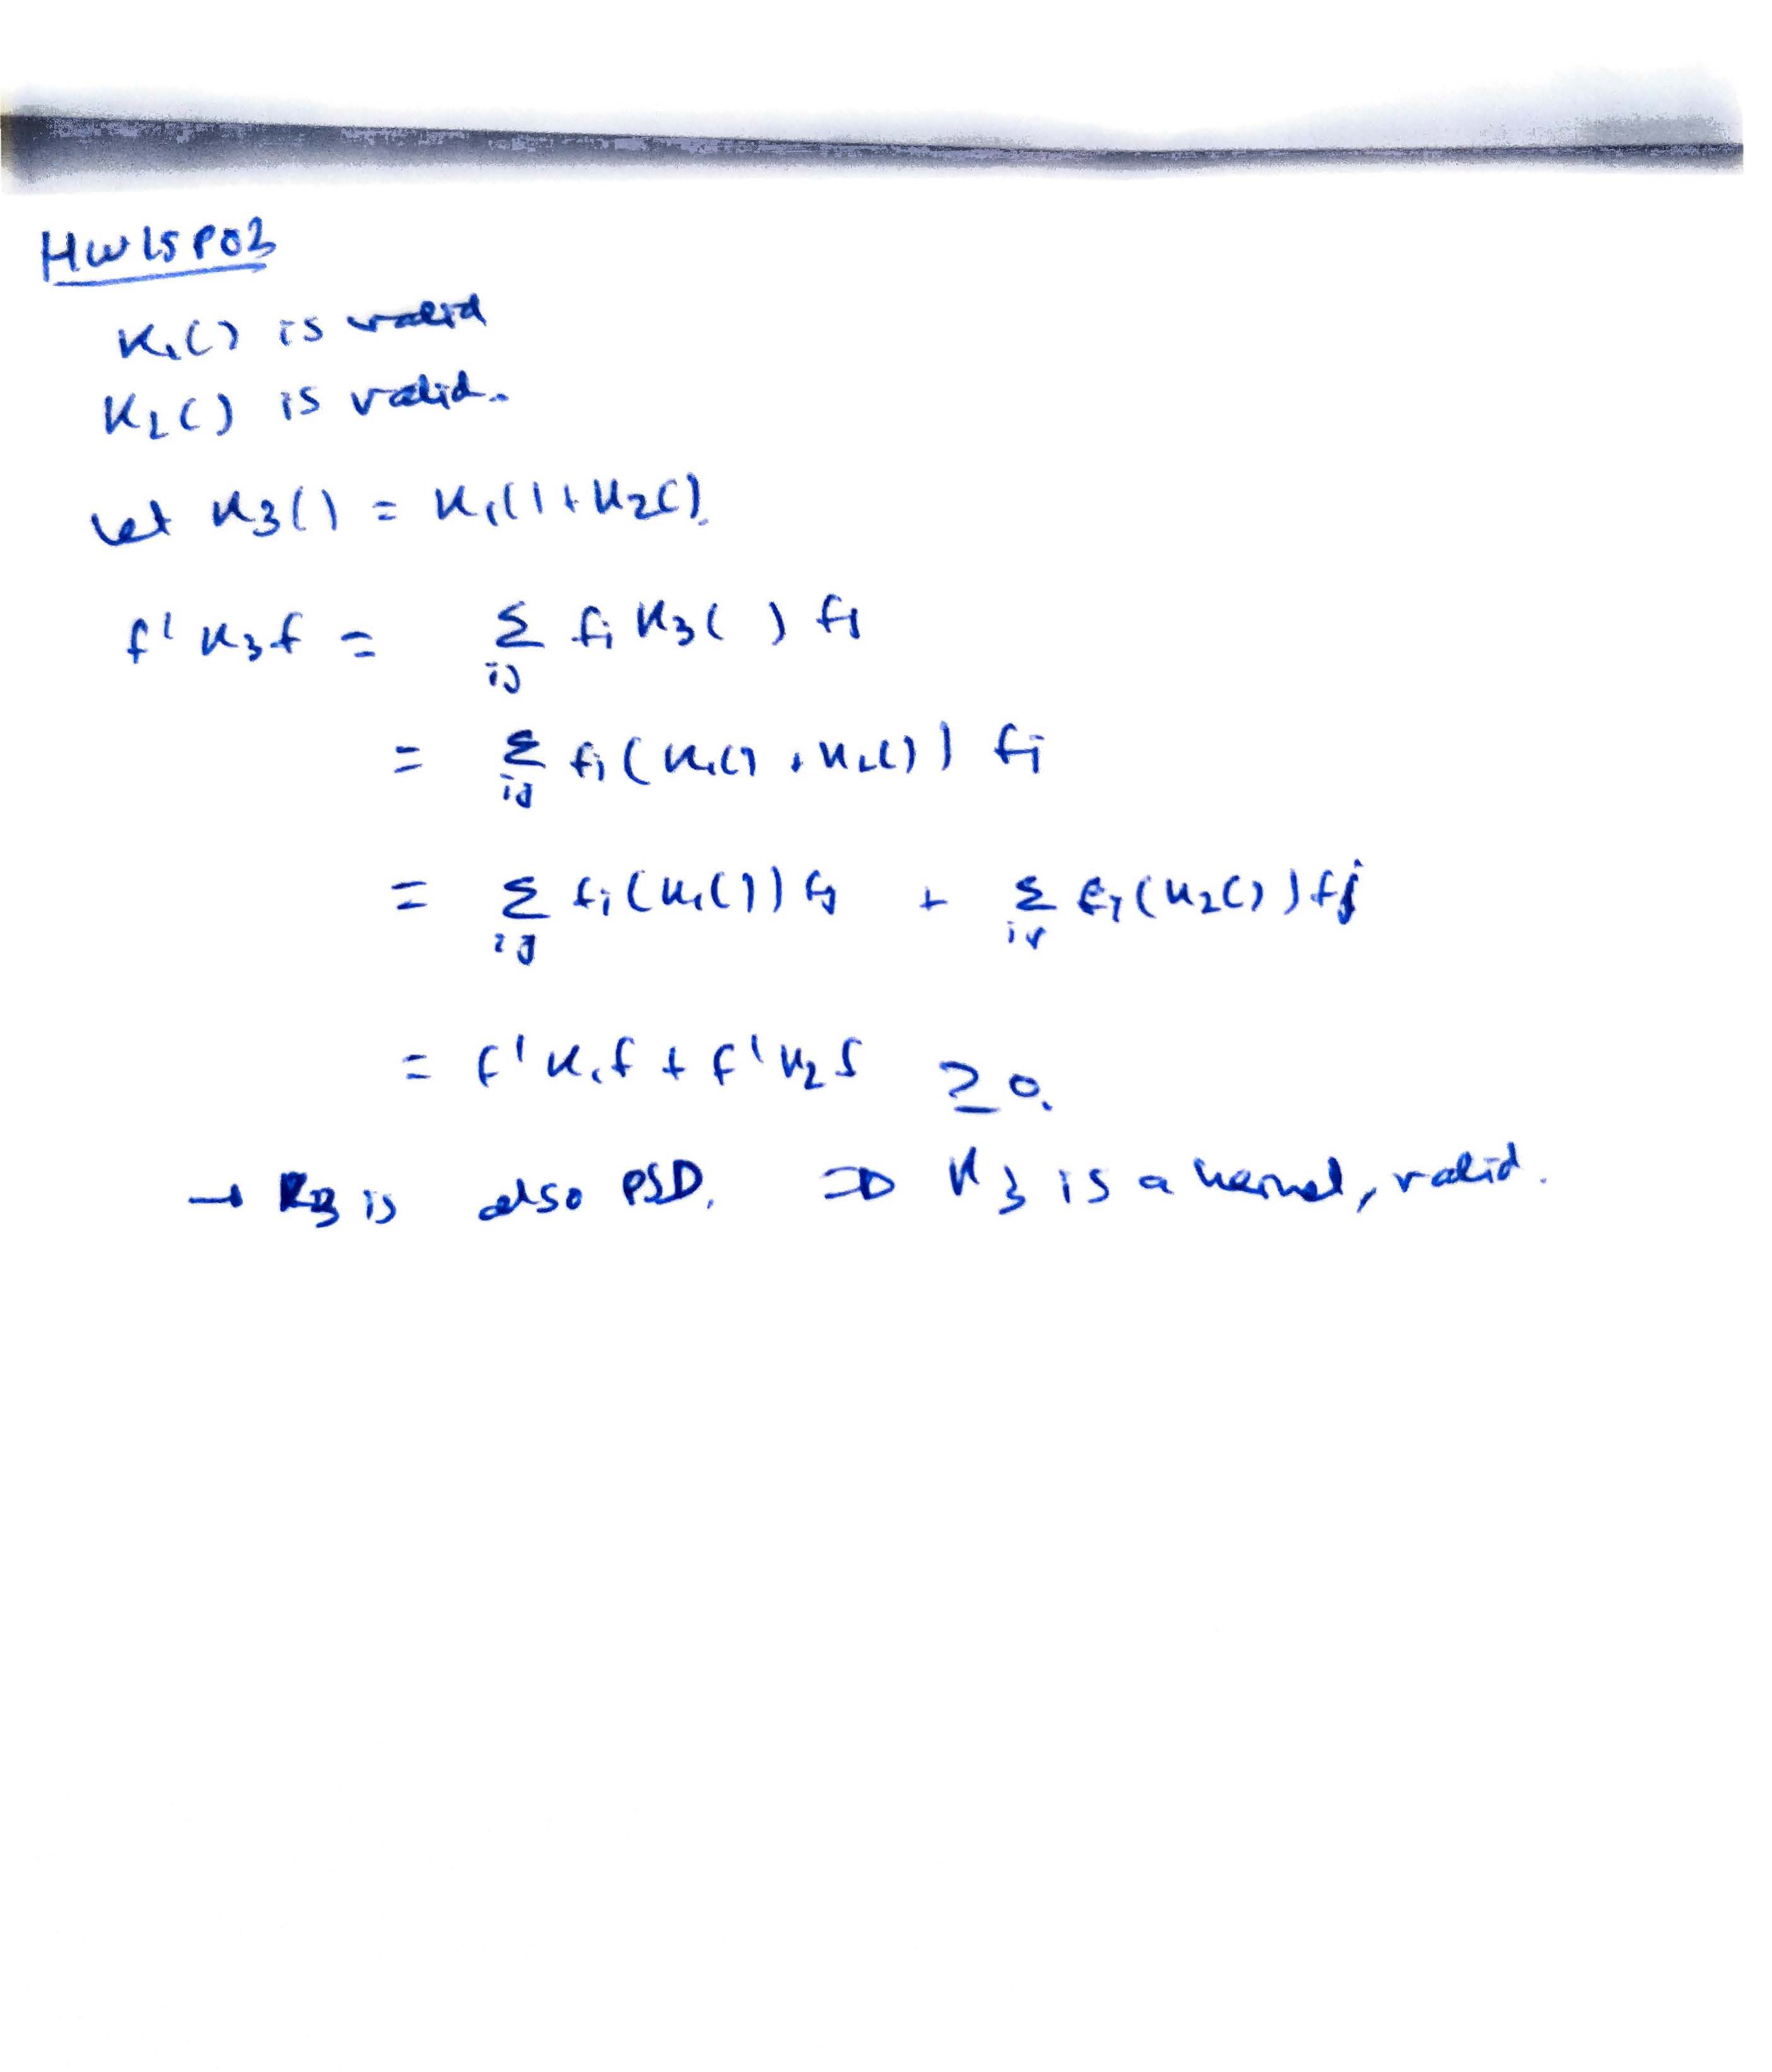 HW15P03
K1() is valid
K2() is valid.
Let K3() = K1() + K2().
f' K3 f = Σ fi K3( ) fj
ij
= Σ fi (K1() + K2()) fj
ij
= Σ fi (K1()) fj + Σ fi (K2()) fj
ij ij
= f' K1 f + f' K2 f ≥ 0.
→ K3 is also PSD. ⇒ K3 is a kernel, valid.